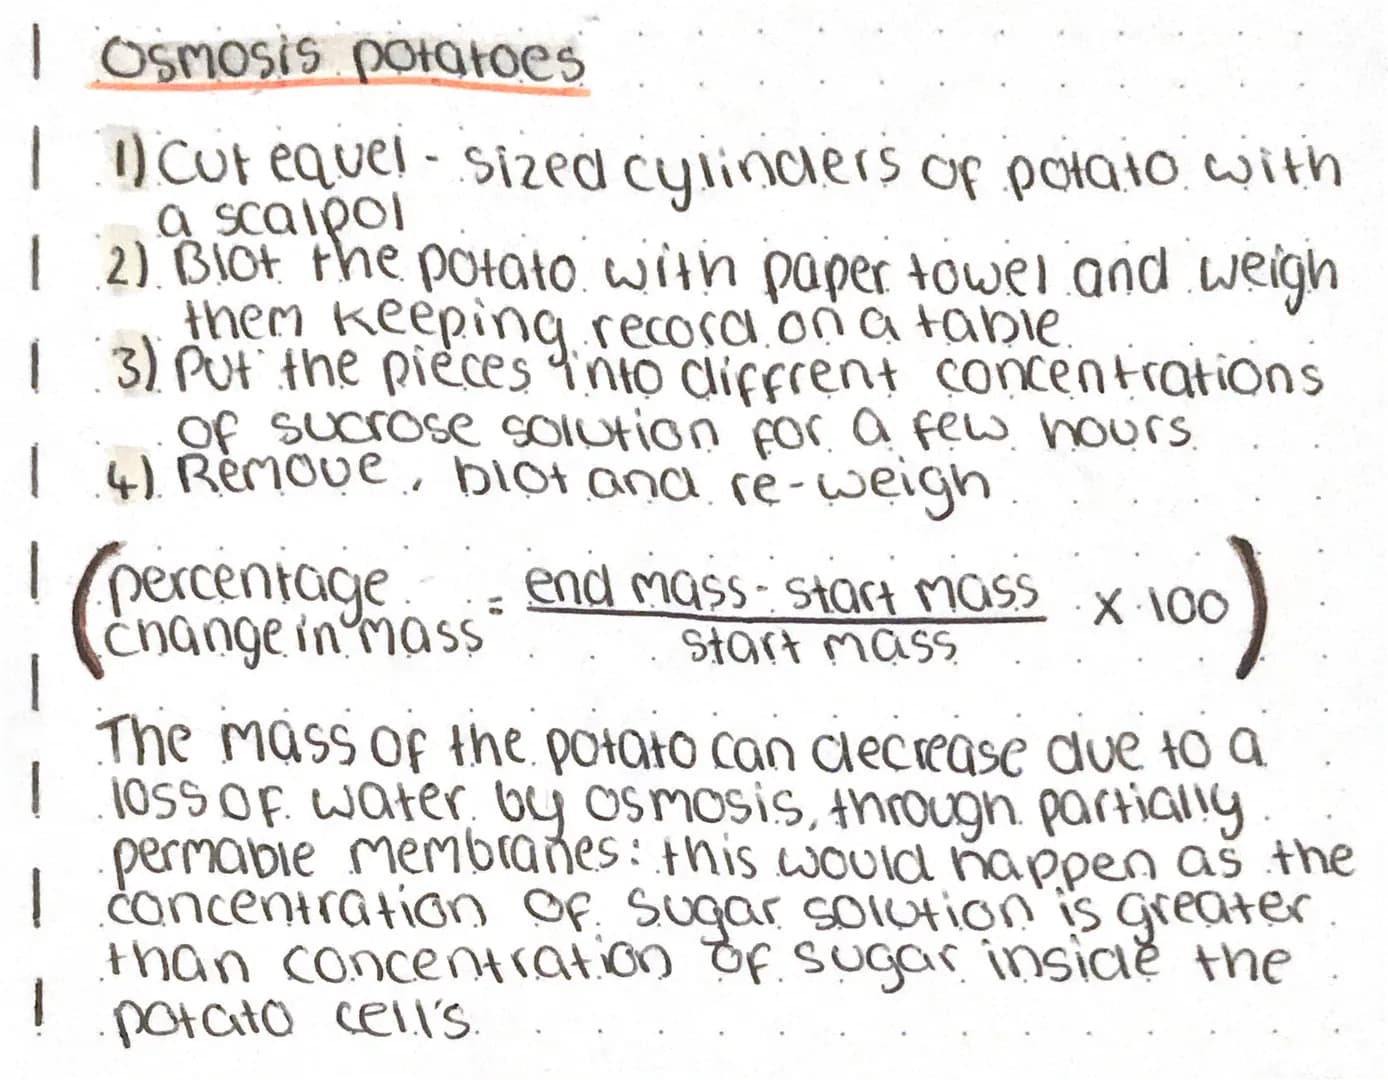 Osmosis potatoes
1) Cut equel - sized cylinders of potato with
a scalpol
2) Blot the potato with paper towel and weigh
them keeping record on a table
3) Put the pieces into diffrent concentrations
of sucrose solution for a few hours
4) Remove, blot and re-weigh
percentage
change in mass = end mass - start mass x 100
start mass
The mass of the potato can decrease due to a
loss of water by osmosis, through partially
permable membranes: this would happen as the
concentration of sugar solution is greater
than concentration of sugar inside the
potato cell's.